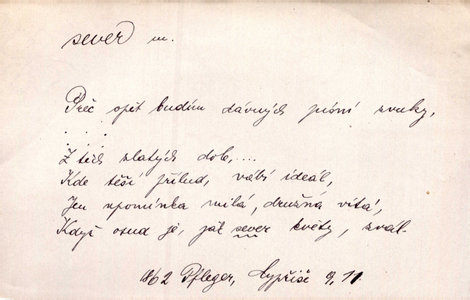 sever m.
Proč opět budím dávných písní zvuky,
. . . .
Z těch zlatých dob,....
Kde těší přelud, vábí ideál,
Jen upomínka milá, družná vítá,
Když osud je, jak sever květy, svál.
1862 Pfleger, Cypřiše 9, 11